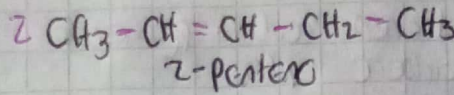 2 CH3-CH=CH-CH2-CH3
2-penteno